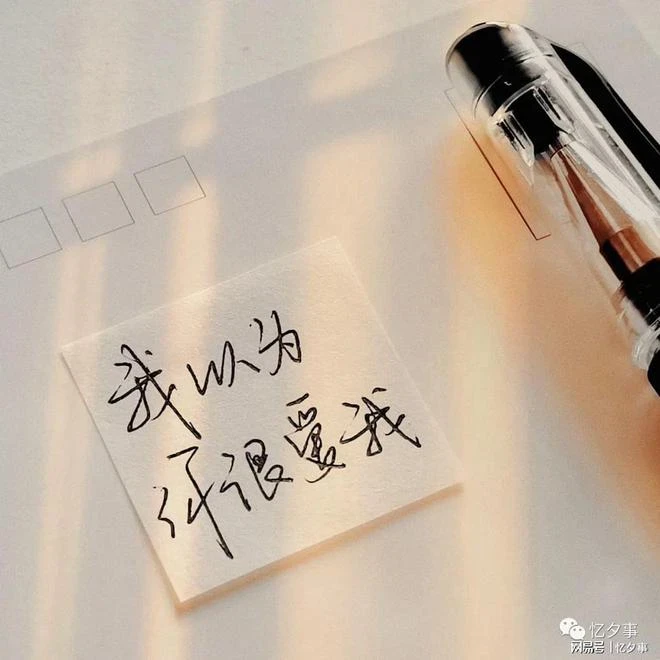 我以为
你很爱我
忆夕事
网易号 | 忆夕事